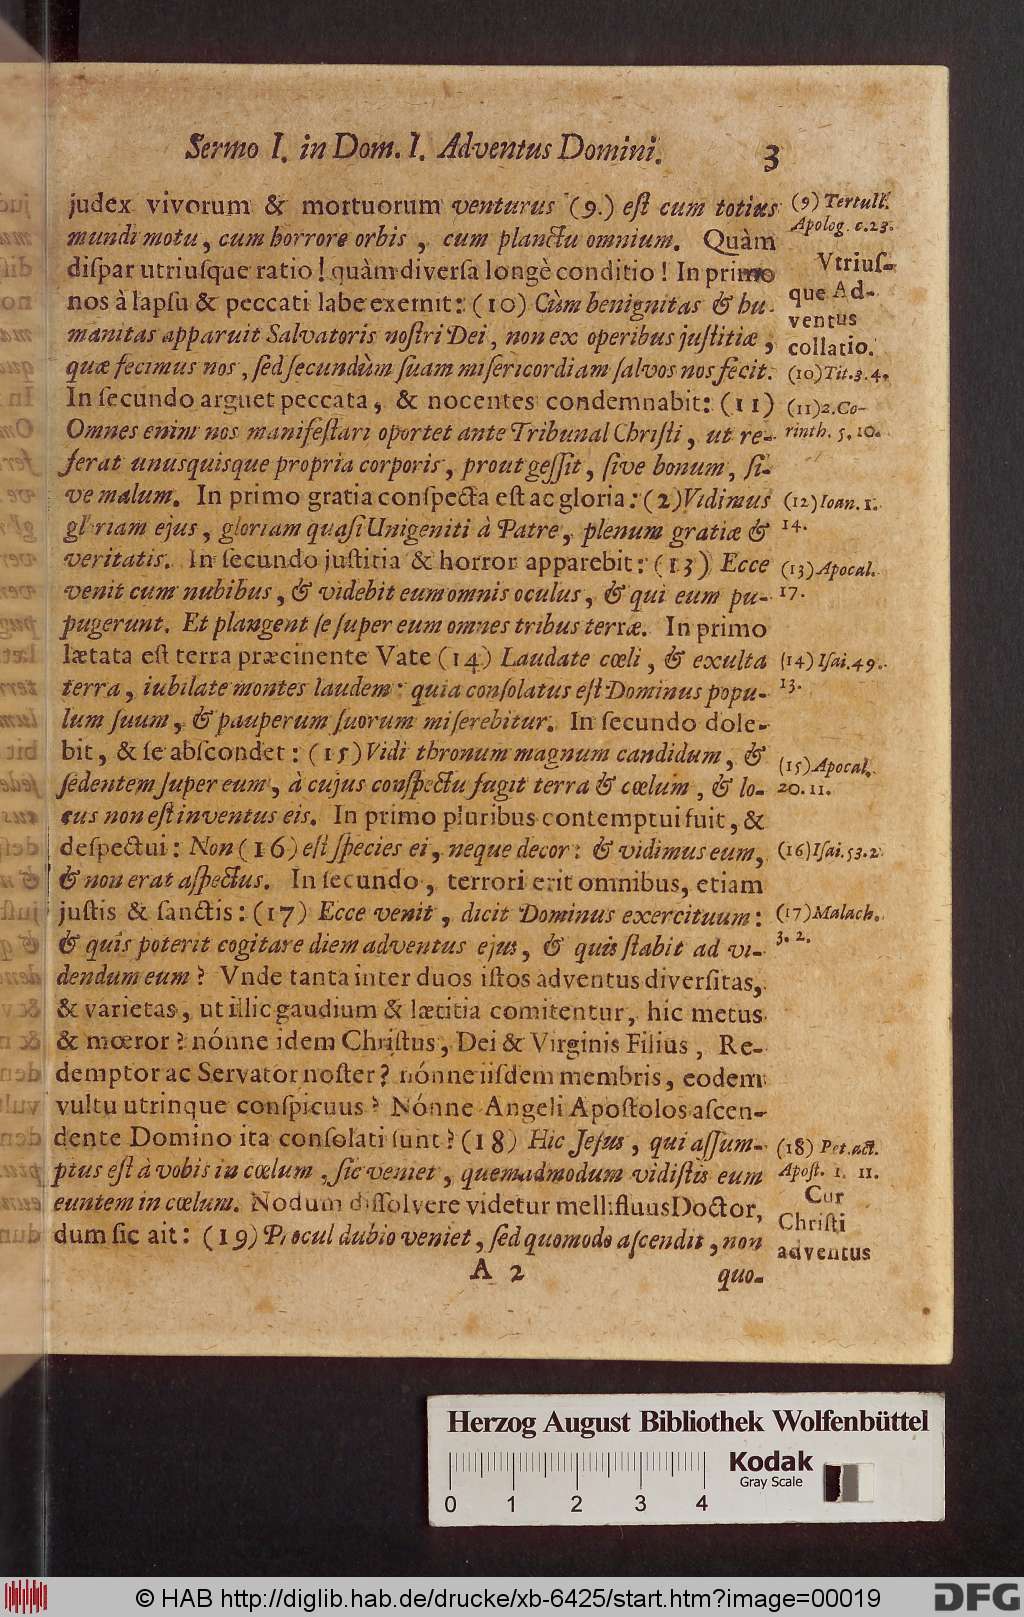 Sermo I. in Dom. I. Adventus Domini. 3
judex vivorum & mortuorum venturus (9.) eſt cum totius
mundi motu, cum horrore orbis, cum planctu omnium. Quàm
diſpar utriuſque ratio! quàm diverſa longè conditio! In primo
nos à lapſu & peccati labe exemit: (10) Cùm benignitas & hu-
manitas apparuit Salvatoris noſtri Dei, non ex operibus juſtitiæ,
quæ fecimus nos, ſed ſecundùm ſuam miſericordiam ſalvos nos fecit.
In ſecundo arguet peccata, & nocentes condemnabit: (11)
Omnes enim nos manifeſtari oportet ante Tribunal Chriſti, ut re-
ferat unusquisque propria corporis, prout geſſit, ſive bonum, ſi-
ve malum. In primo gratia conſpecta eſt ac gloria: (2) Vidimus
gloriam ejus, gloriam quaſi Unigeniti à Patre, plenum gratiæ &
veritatis. In ſecundo juſtitia & horror apparebit: (13) Ecce
venit cum nubibus, & videbit eum omnis oculus, & qui eum pu-
pugerunt. Et plangent ſe ſuper eum omnes tribus terræ. In primo
lætata eſt terra præcinente Vate (14) Laudate cœli, & exulta
terra, iubilate montes laudem: quia conſolatus eſt Dominus popu-
lum ſuum, & pauperum ſuorum miſerebitur. In ſecundo dole-
bit, & ſe abſcondet: (15) Vidi thronum magnum candidum, &
ſedentem ſuper eum, à cujus conſpectu fugit terra & cœlum, & lo-
cus non eſt inventus eis. In primo pluribus contemptui fuit, &
deſpectui: Non (16) eſt ſpecies ei, neque decor: & vidimus eum,
& non erat aſpectus. In ſecundo, terrori erit omnibus, etiam
juſtis & ſanctis: (17) Ecce venit, dicit Dominus exercituum:
& quis poterit cogitare diem adventus ejus, & quis ſtabit ad vi-
dendum eum? Vnde tanta inter duos iſtos adventus diverſitas,
& varietas, ut illic gaudium & lætitia comitentur, hic metus
& mœror? nónne idem Chriſtus, Dei & Virginis Filius, Re-
demptor ac Servator noſter? nónne iiſdem membris, eodem
vultu utrinque conſpicuus? Nónne Angeli Apoſtolos aſcen-
dente Domino ita conſolati ſunt? (18) Hic Jeſus, qui aſſum-
ptus eſt à vobis in cœlum, ſic veniet, quemadmodum vidiſtis eum
euntem in cœlum. Nodum diſſolvere videtur mellifluus Doctor,
dum ſic ait: (19) Procul dubio veniet, ſed quomodo aſcendit, non
A 2 quo-
(9) Tertull.
Apolog. c. 23.
Vtriuſ-
que Ad-
ventus
collatio.
(10) Tit. 3. 4.
(11) 2. Co-
rinth. 5. 10.
(12) Ioan. 1.
14.
(13) Apocal.
17.
(14) Iſai. 49.
13.
(15) Apocal.
20. 11.
(16) Iſai. 53. 2.
(17) Malach.
3. 2.
(18) Pet. act.
Apoſt. 1. 11.
Cur
Chriſti
adventus
Herzog August Bibliothek Wolfenbüttel
Kodak
Gray Scale
0 1 2 3 4
© HAB http://diglib.hab.de/drucke/xb-6425/start.htm?image=00019
DFG